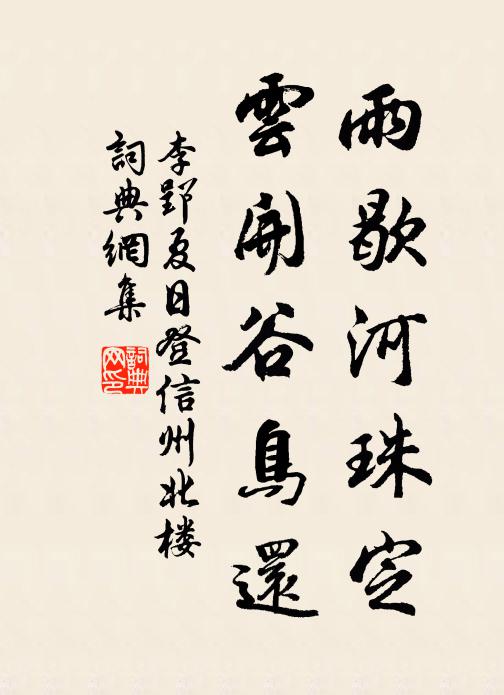 雨歇河珠定
雲開谷鳥還
李郢夏日登信州北楼
詞典網集
詞典
网印